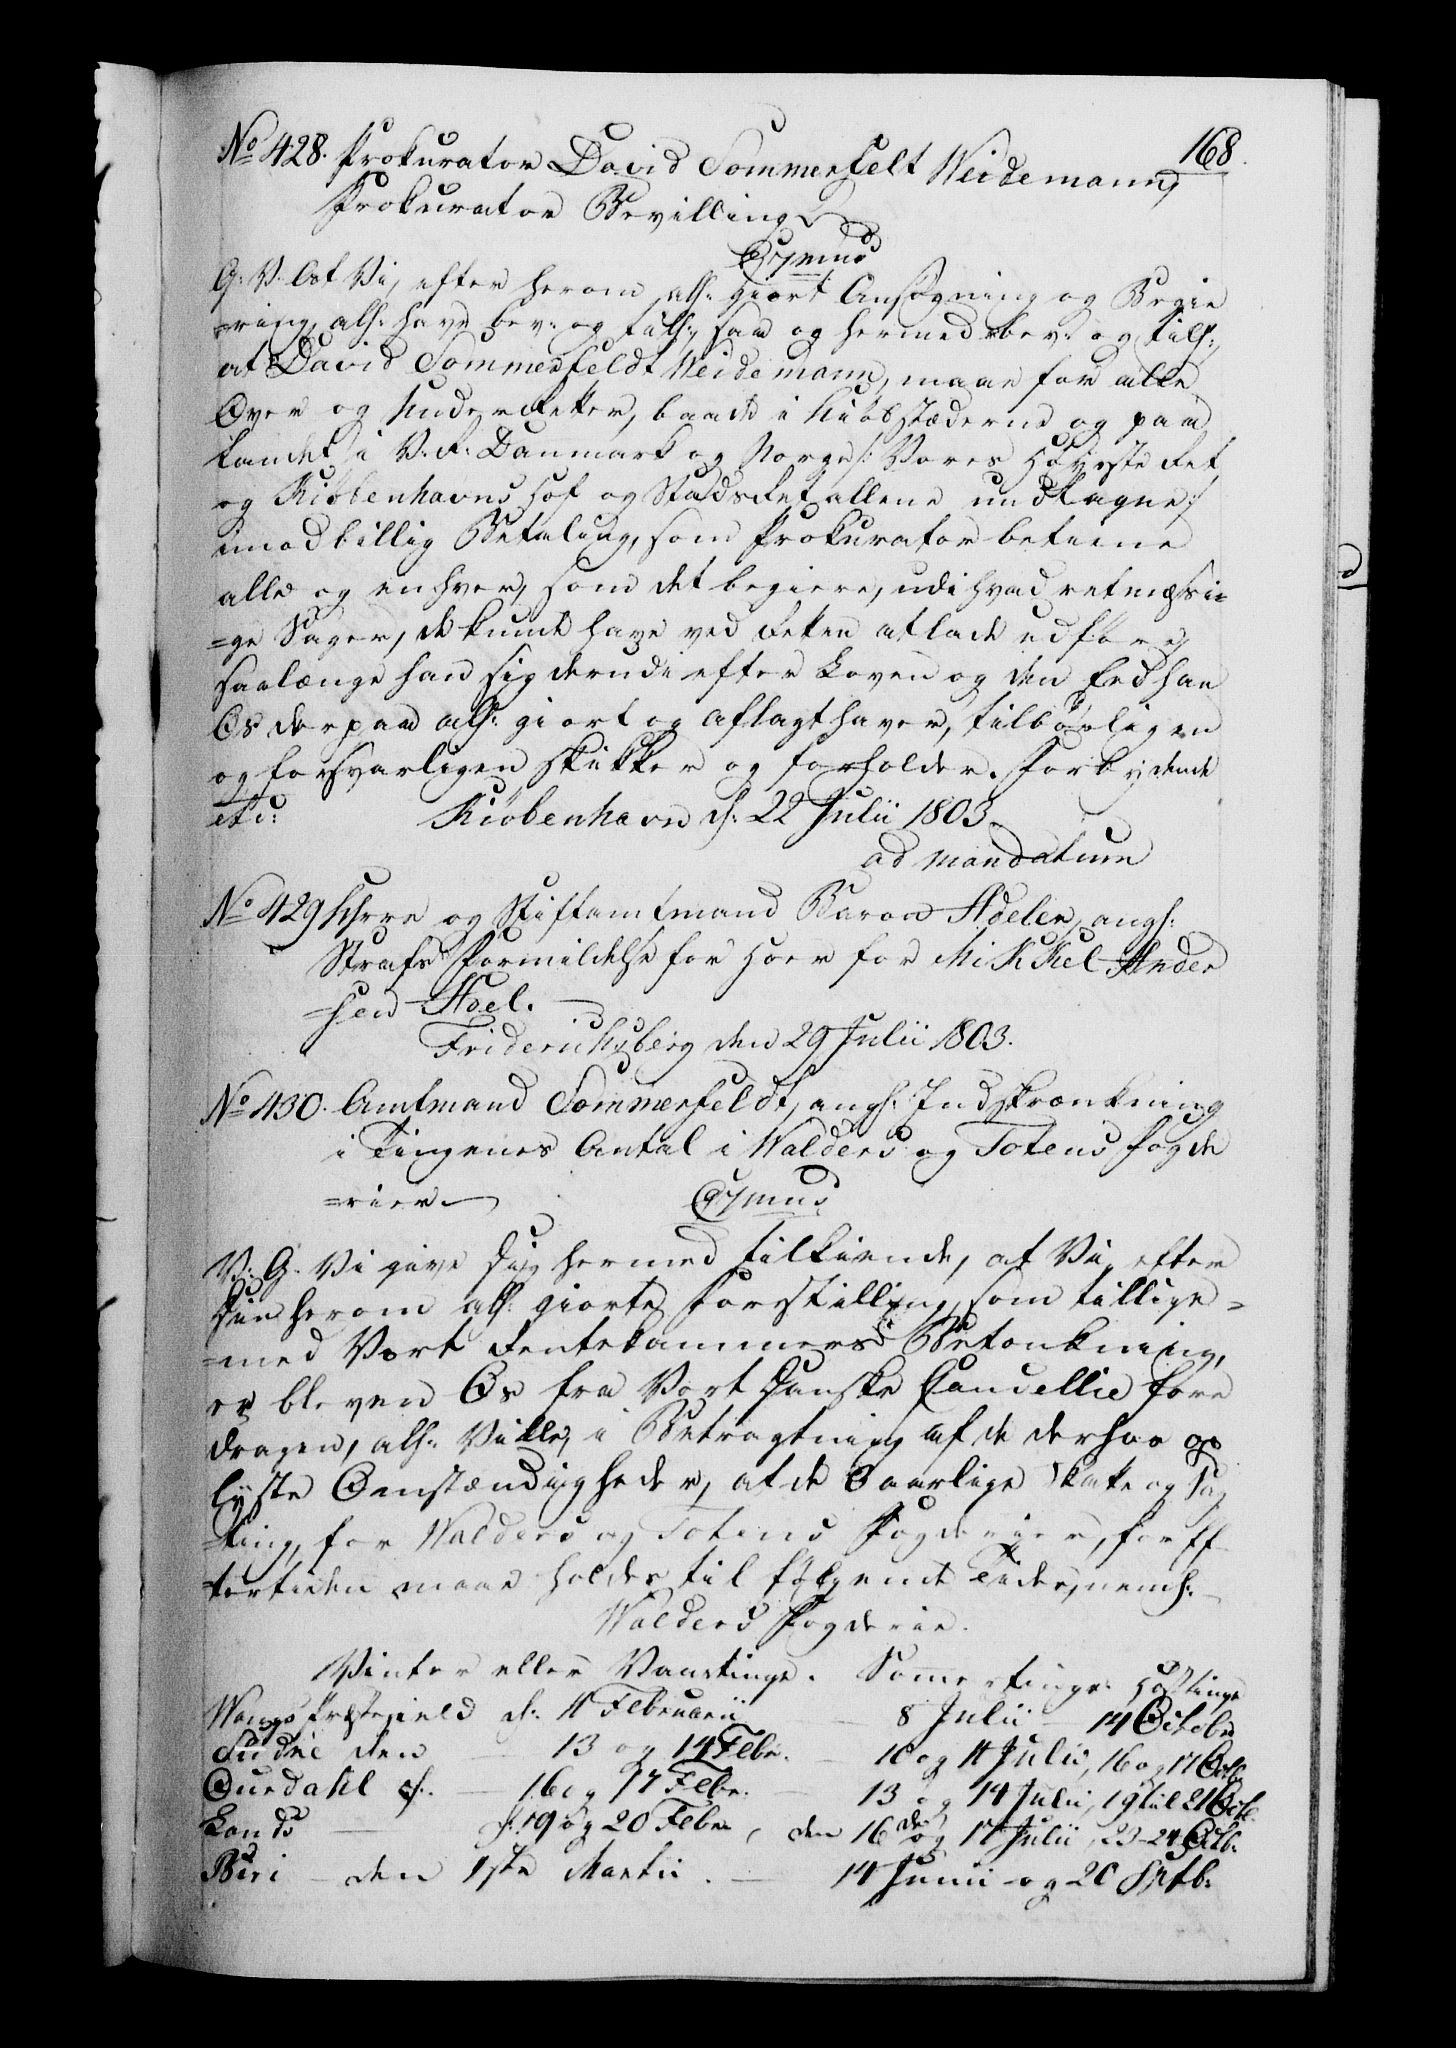 168.
No 428. Prokurator David Sommerfelt Weidemann,
Prokurator Bevilling
G: V: At Vi, efter herom all: giort Ansøgning og Begie
=ring, all: have bev: og till:, saa og hermed bev: og till:,
at David Sommerfeldt Weidemann, maae for alle
Over og Underretter, baade i Kiøbstæderne og paa
Landet i V. R. Danmark og Norge /: Vores Høieste Ret
og Kiøbenhavns Hof og Stadsret allene undtagne :/
imod billig Betaling, som Prokurator betiene
alle og enhver, som det begiere, udi hvad retmæssi=
=ge Sager, de kunde have ved Retten at lade udføre,
saalænge han sig derudi efter Loven og den Eed han
Os derpaa all: giort og aflagt haver, tilbørligen
og forsvarligen skikker og forholder. Forbydende
etc: Kiøbenhavn d: 22 Julii 1803.
ad mandatum
No 429 Hr og Stiftamtmand Baron Adeler, angl:
Strafs Formildelse for Hoer for Mikkel Ander
=sen Hoel.
Friderichsberg den 29 Julii 1803.
No 430. Amtmand Sommerfeldt, angl: Indskrænkning
i Tingenes Antal i Walders og Totens Fogde
=rier
V: G. Vi give Dig hermed tilkiende, at Vi, efter
Din herom all: giorte Forestilling, som tillige=
=med Vort Rentekammers Betænkning,
er bleven Os fra Vort Danske Cancellie fore
dragen, all: Ville, i Betragtning af de derhos op
lyste Omstændigheder, at de aarlige Skatte og Sag
=ting, for Walders og Totens Fogderier, for Ef
tertiden maae holdes til følgende Tider, neml:
Walders Fogderie.
Vinter eller Vaartinge. Sommertinge. Høsttinge
Wangs Præstegield d: 11 Februarii 8 Julii 14 October
den 13 og 14 Febr. 10 og 11 Julii, 16 og 17 Octb
Ourdahl d: 16 og 17 Febr. 13 og 14 Julii, 19 til 21 Octb.
Lands d: 19 og 20 Febr, den 16de og 17 Julii, 23-24 Octb.
Biri den 1ste Martii. 14 Junii og 20 Septb: